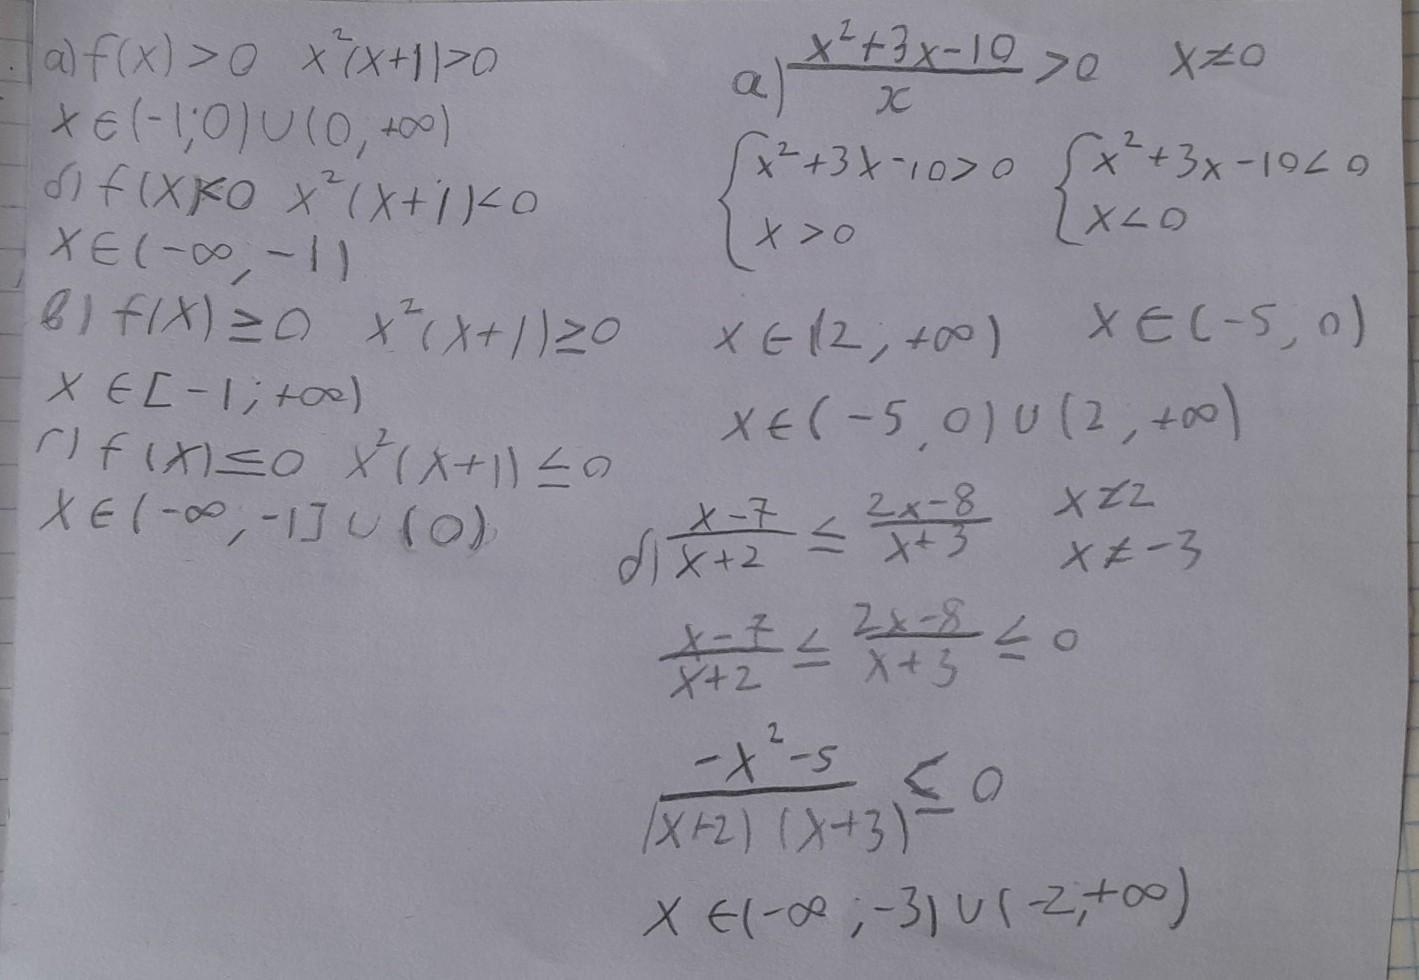 а) f(x) > 0 x²(x+1)>0
x ∈ (-1;0) ∪ (0, +∞)
б) f(x)<0 x²(x+1)<0
x ∈ (-∞, -1)
в) f(x) ≥ 0 x²(x+1)≥0
x ∈ [-1; +∞)
г) f(x) ≤ 0 x²(x+1) ≤ 0
x ∈ (-∞, -1] ∪ (0)
а) (x²+3x-10)/x > 0 x≠0
{x²+3x-10>0 {x²+3x-10<0
{x>0 {x<0
x ∈ (2; +∞) x ∈ (-5, 0)
x ∈ (-5, 0) ∪ (2, +∞)
б) (x-7)/(x+2) ≤ (2x-8)/(x+3) x≠2
x≠-3
(x-7)/(x+2) ≤ (2x-8)/(x+3) ≤ 0
(-x²-5)/((x+2)(x+3)) ≤ 0
x ∈ (-∞; -3) ∪ (-2; +∞)